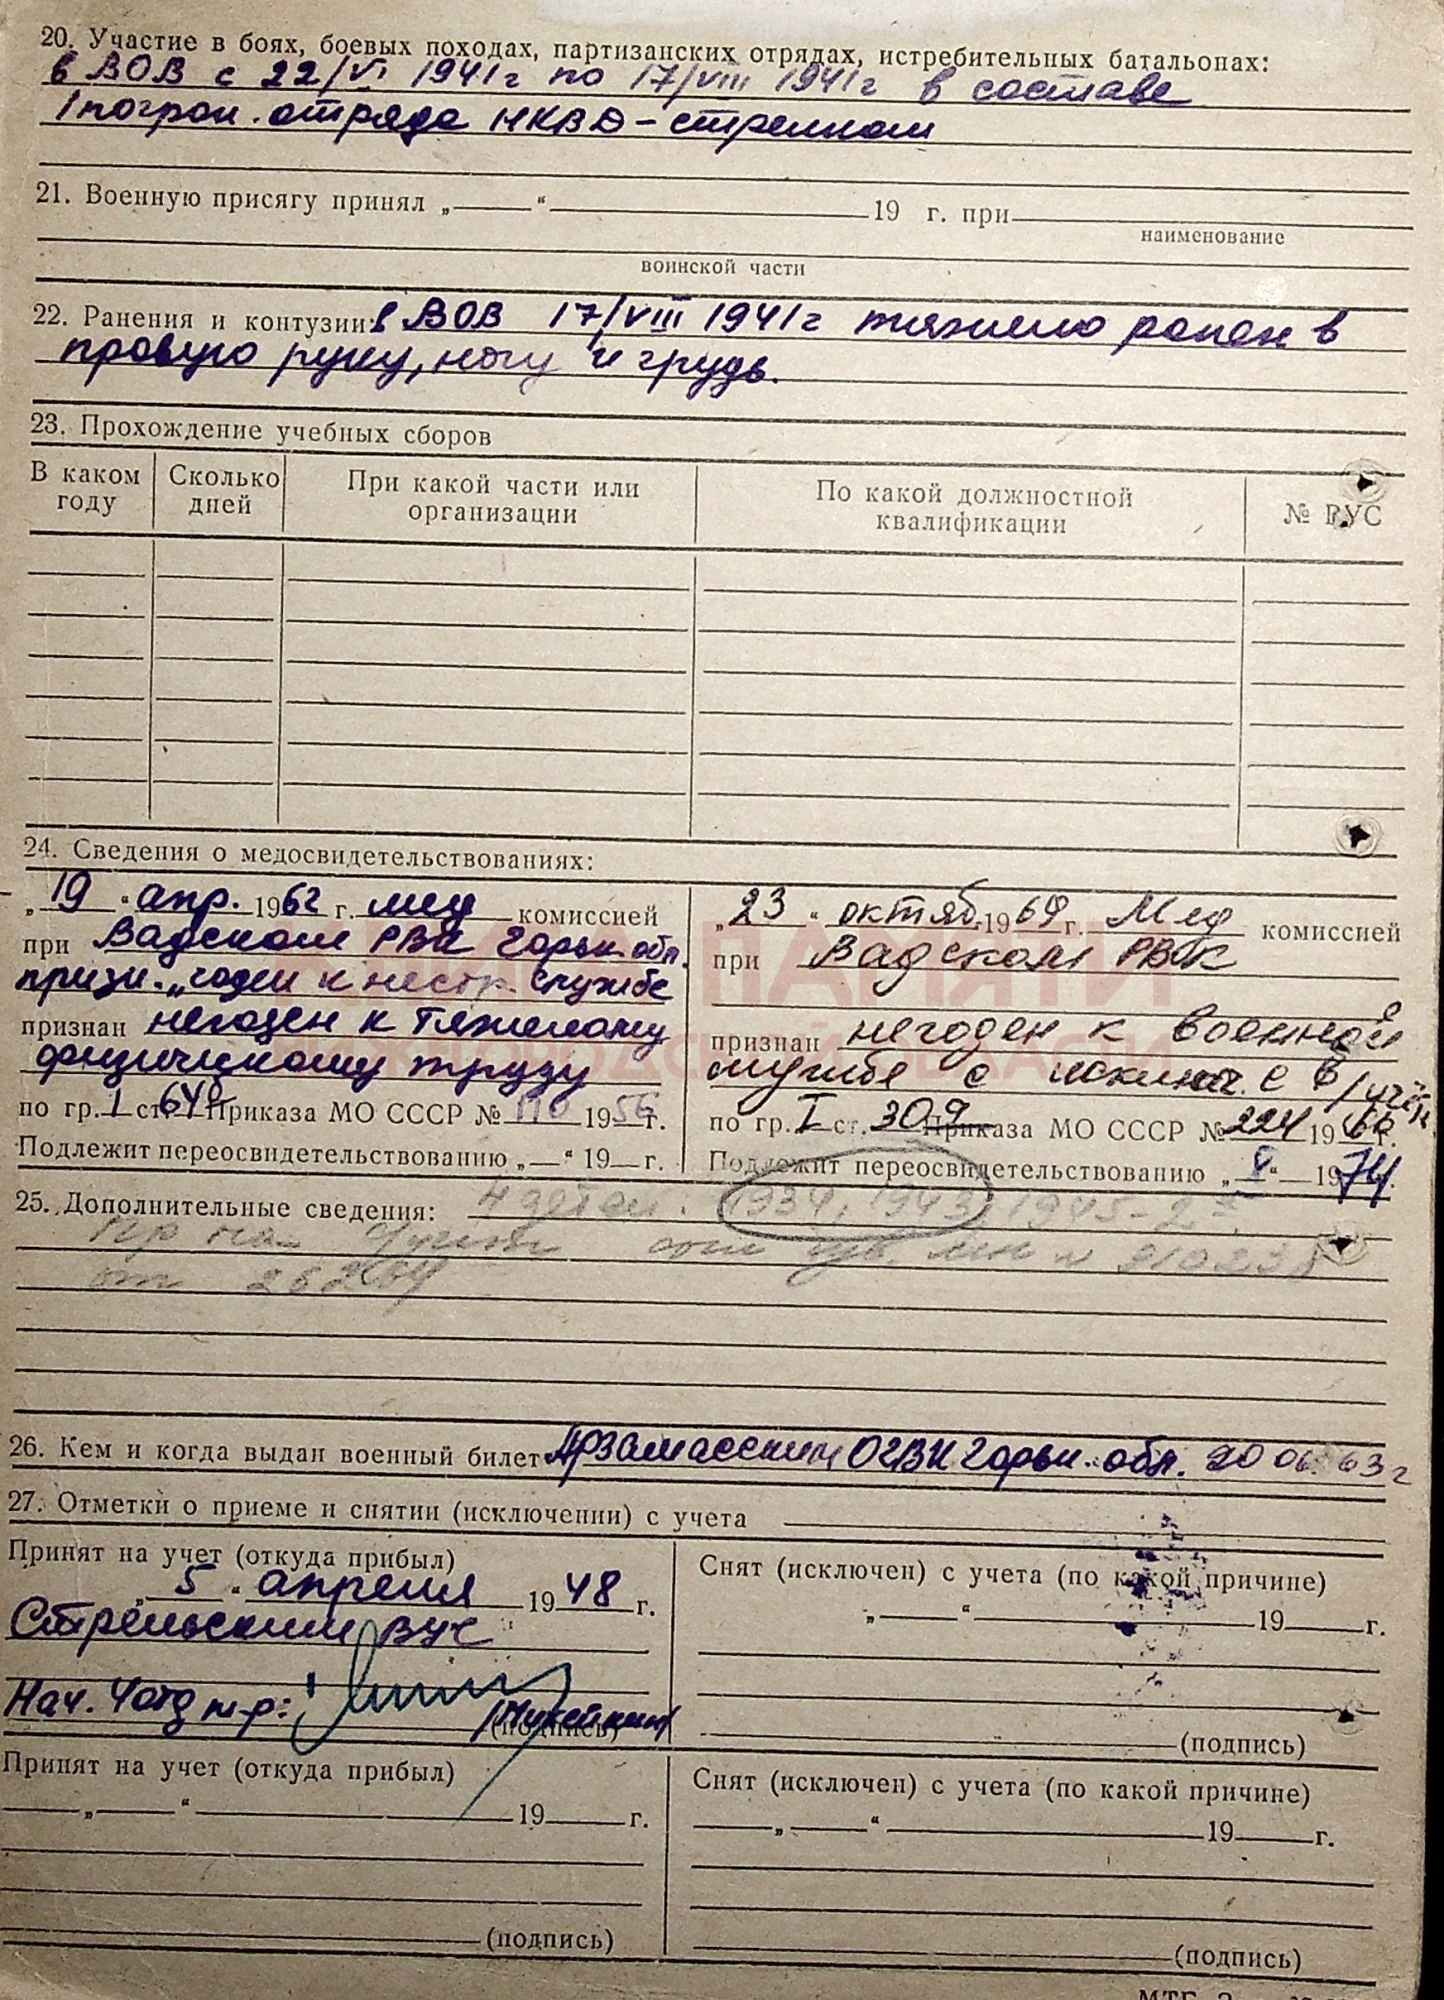 20. Участие в боях, боевых походах, партизанских отрядах, истребительных батальонах:
в ВОВ с 22/VI 1941г по 17/VIII 1941г в составе
1 погран. отряда НКВД – стрелком
21. Военную присягу принял „ “ 19 г. при
наименование
воинской части
22. Ранения и контузии: в ВОВ 17/VIII 1941г тяжело ранен в
правую руку, ногу и грудь.
23. Прохождение учебных сборов
В каком году
Сколько дней
При какой части или организации
По какой должностной квалификации
№ ВУС
24. Сведения о медосвидетельствованиях:
„19“ апр. 1962 г. мед комиссией
при Вадском РВК Горьк. обл.
призн. „годен к нестр. службе
признан негоден к тяжелому
физическому труду
по гр. I ст. 64б Приказа МО СССР № 110 1956 г.
Подлежит переосвидетельствованию „ “ 19 г.
„23“ октяб. 1969 г. Мед комиссией
при Вадском РВК
признан негоден к военной
службе с исключ. с в/учёта
по гр. I ст. 30 Приказа МО СССР № 224 1966 г.
Подлежит переосвидетельствованию „V“ 1974 г.
25. Дополнительные сведения: 4 детей. 1934, 1943, 1945 - 2
от
26. Кем и когда выдан военный билет Арзамасским ОГВК Горьк. обл. 20 06. 63 г
27. Отметки о приеме и снятии (исключении) с учета
Принят на учет (откуда прибыл)
„5“ апреля 1948 г.
Стрельским ВУС
Нач. 4 отд м-р:
(подпись)
Снят (исключен) с учета (по какой причине)
„ “ 19 г.
(подпись)
Принят на учет (откуда прибыл)
„ “ 19 г.
(подпись)
Снят (исключен) с учета (по какой причине)
„ “ 19 г.
(подпись)